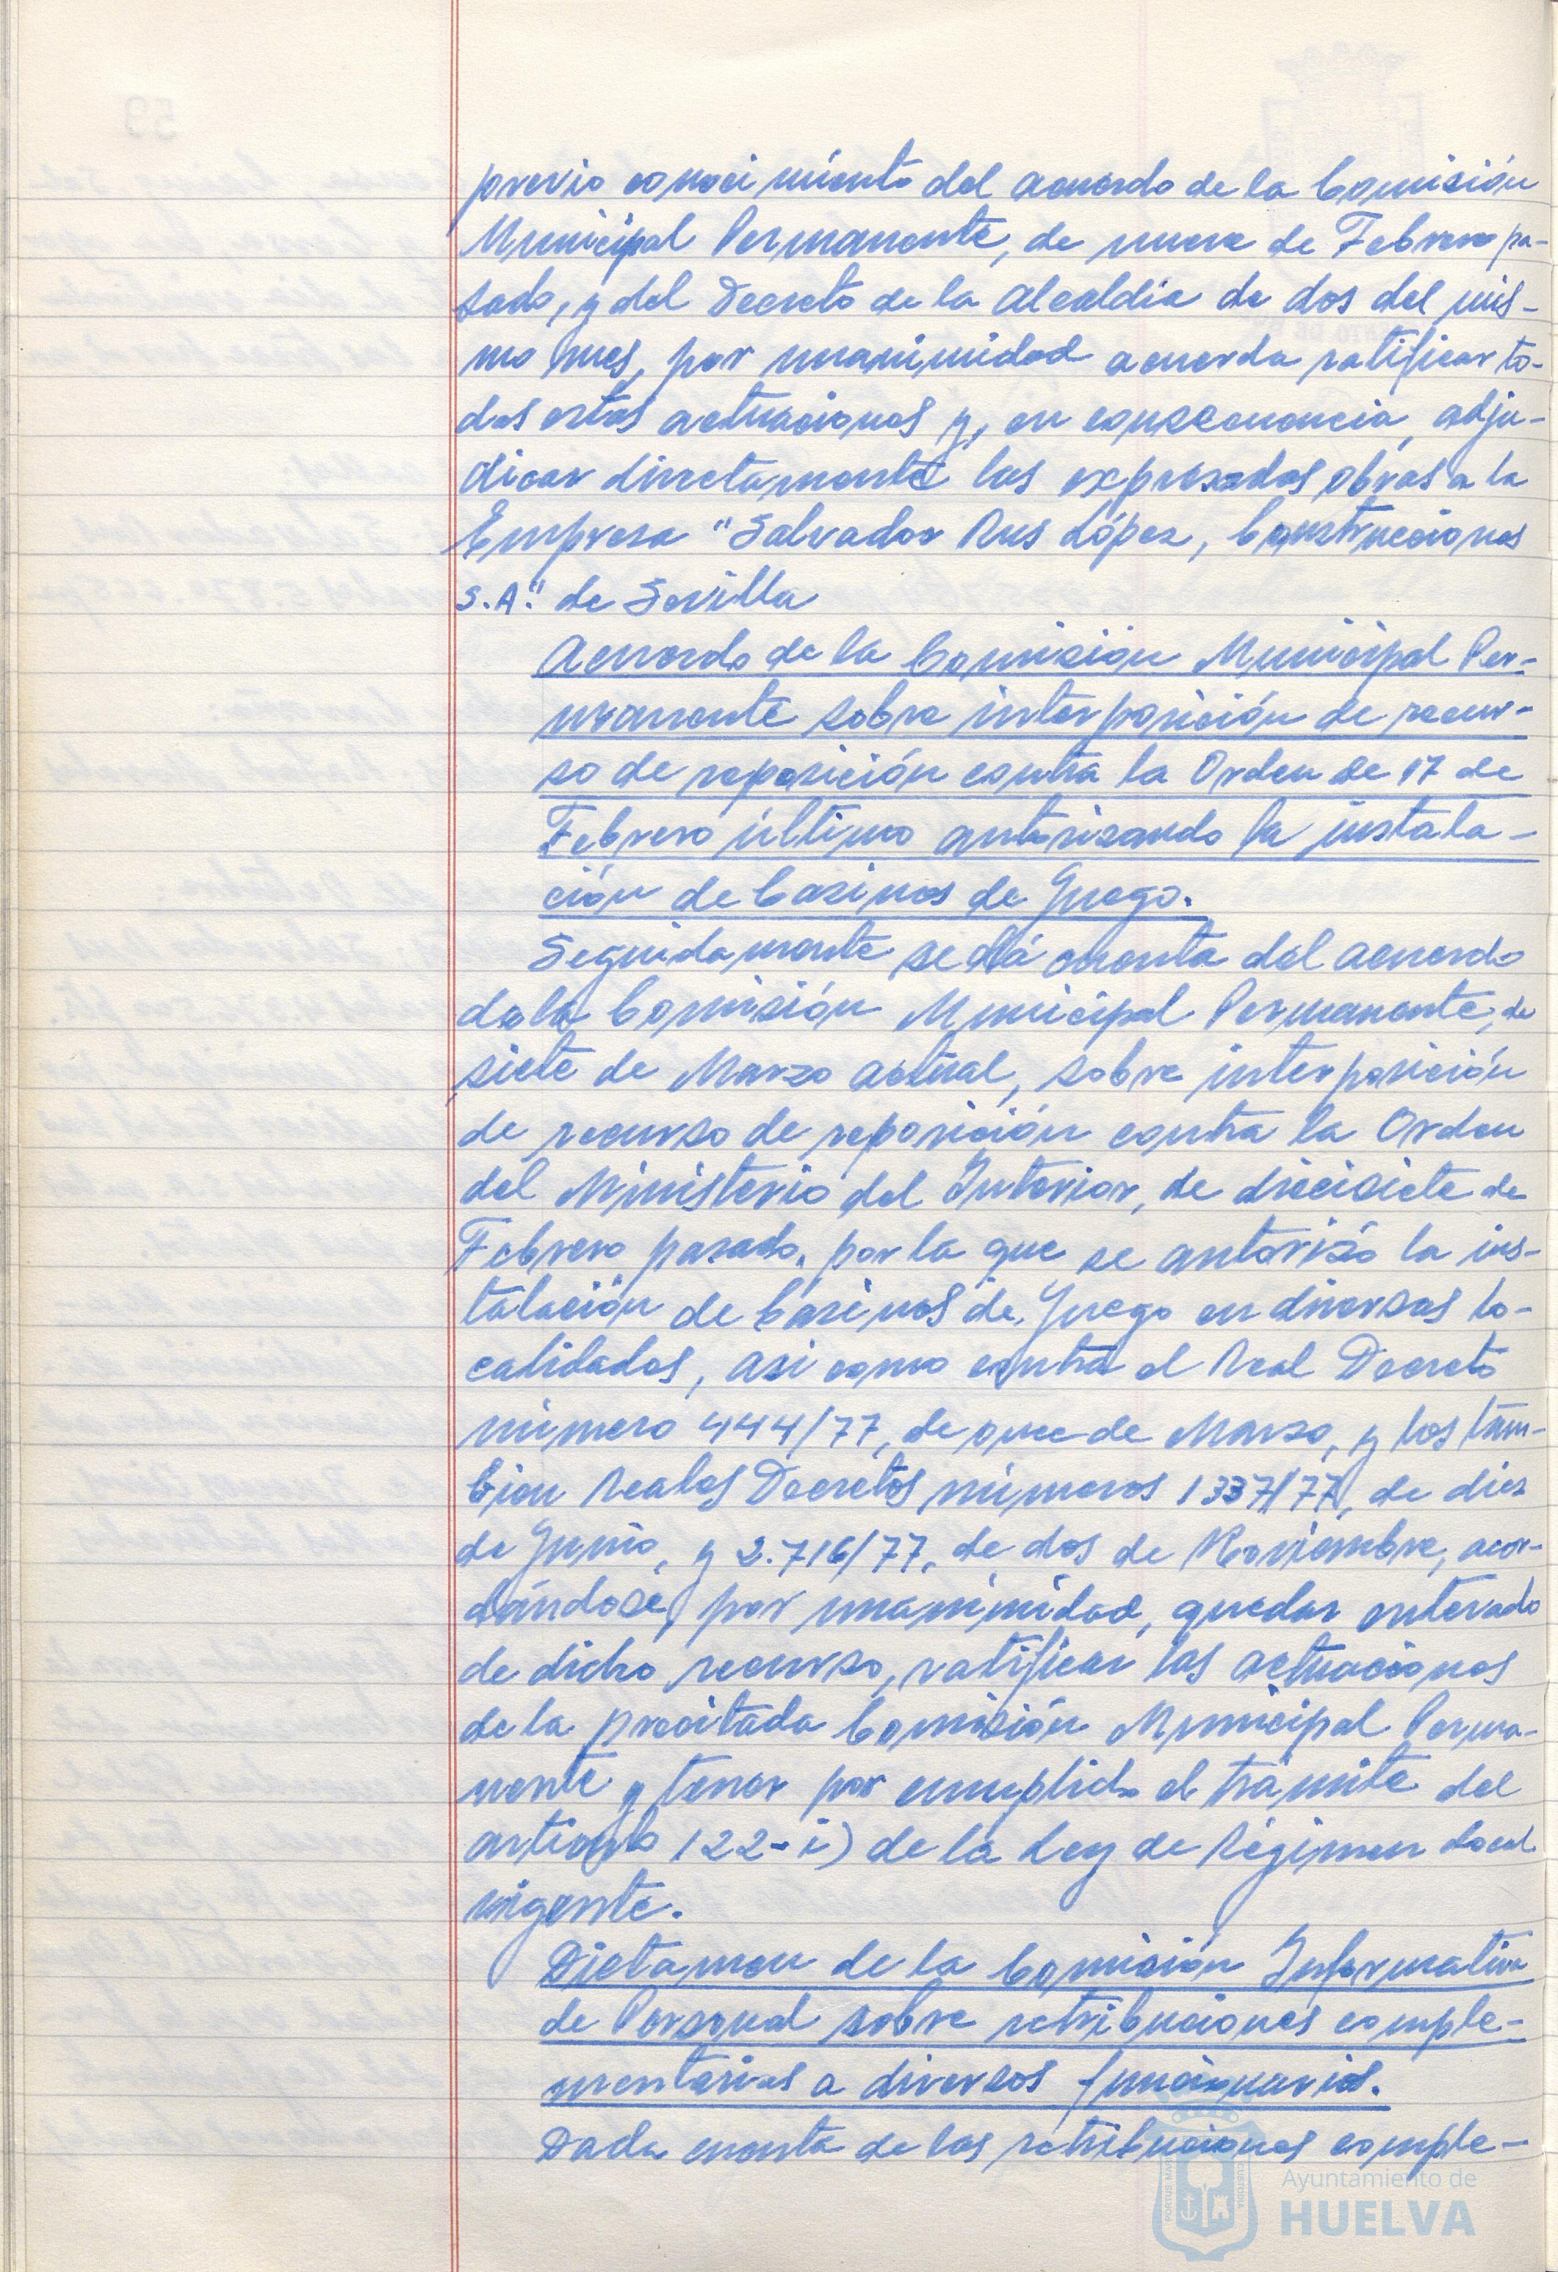 previo conocimiento del acuerdo de la Comisión
Municipal Permanente, de nueve de Febrero pa-
sado, y del Decreto de la Alcaldía de dos del mis-
mo mes, por unanimidad acuerda ratificar to-
das estas actuaciones y, en consecuencia, adju-
dicar directamente las expresadas obras a la
Empresa "Salvador Rus López, Construcciones
S.A." de Sevilla
Acuerdo de la Comisión Municipal Per-
manente sobre interposición de recur-
so de reposición contra la Orden de 17 de
Febrero último autorizando la instala-
ción de Casinos de Juego.
Seguidamente se dá cuenta del acuerdo
de la Comisión Municipal Permanente, de
siete de Marzo actual, sobre interposición
de recurso de reposición contra la Orden
del Ministerio del Interior, de diecisiete de
Febrero pasado, por la que se autorizó la ins-
talación de Casinos de Juego en diversas lo-
calidades, asi como contra el Real Decreto
número 444/77, de once de Marzo, y los tam-
bien Reales Decretos números 1337/77, de diez
de Junio, y 2.716/77, de dos de Noviembre, acor-
dándose, por unanimidad, quedar enterado
de dicho recurso, ratificar las actuaciones
de la precitada Comisión Municipal Perma-
nente y tener por cumplido el trámite del
artículo 122-i) de la Ley de Régimen Local
vigente.
Dictamen de la Comisión Informativa
de Personal sobre retribuciones comple-
mentarias a diversos funcionarios.
Dada cuenta de las retribuciones comple-
Ayuntamiento de
HUELVA